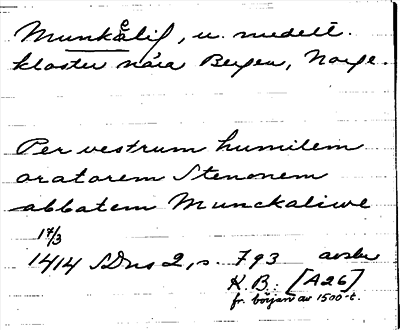 Munkålif, u. medelt.
kloster nära Bergen, Norge.
Per vestrum humilem
oratorem Stenonem
abbatem Munckaliwe
17/3
1414 SDns 2, s. 793 avskr
K.B. [A26]
fr. början av 1500-t.